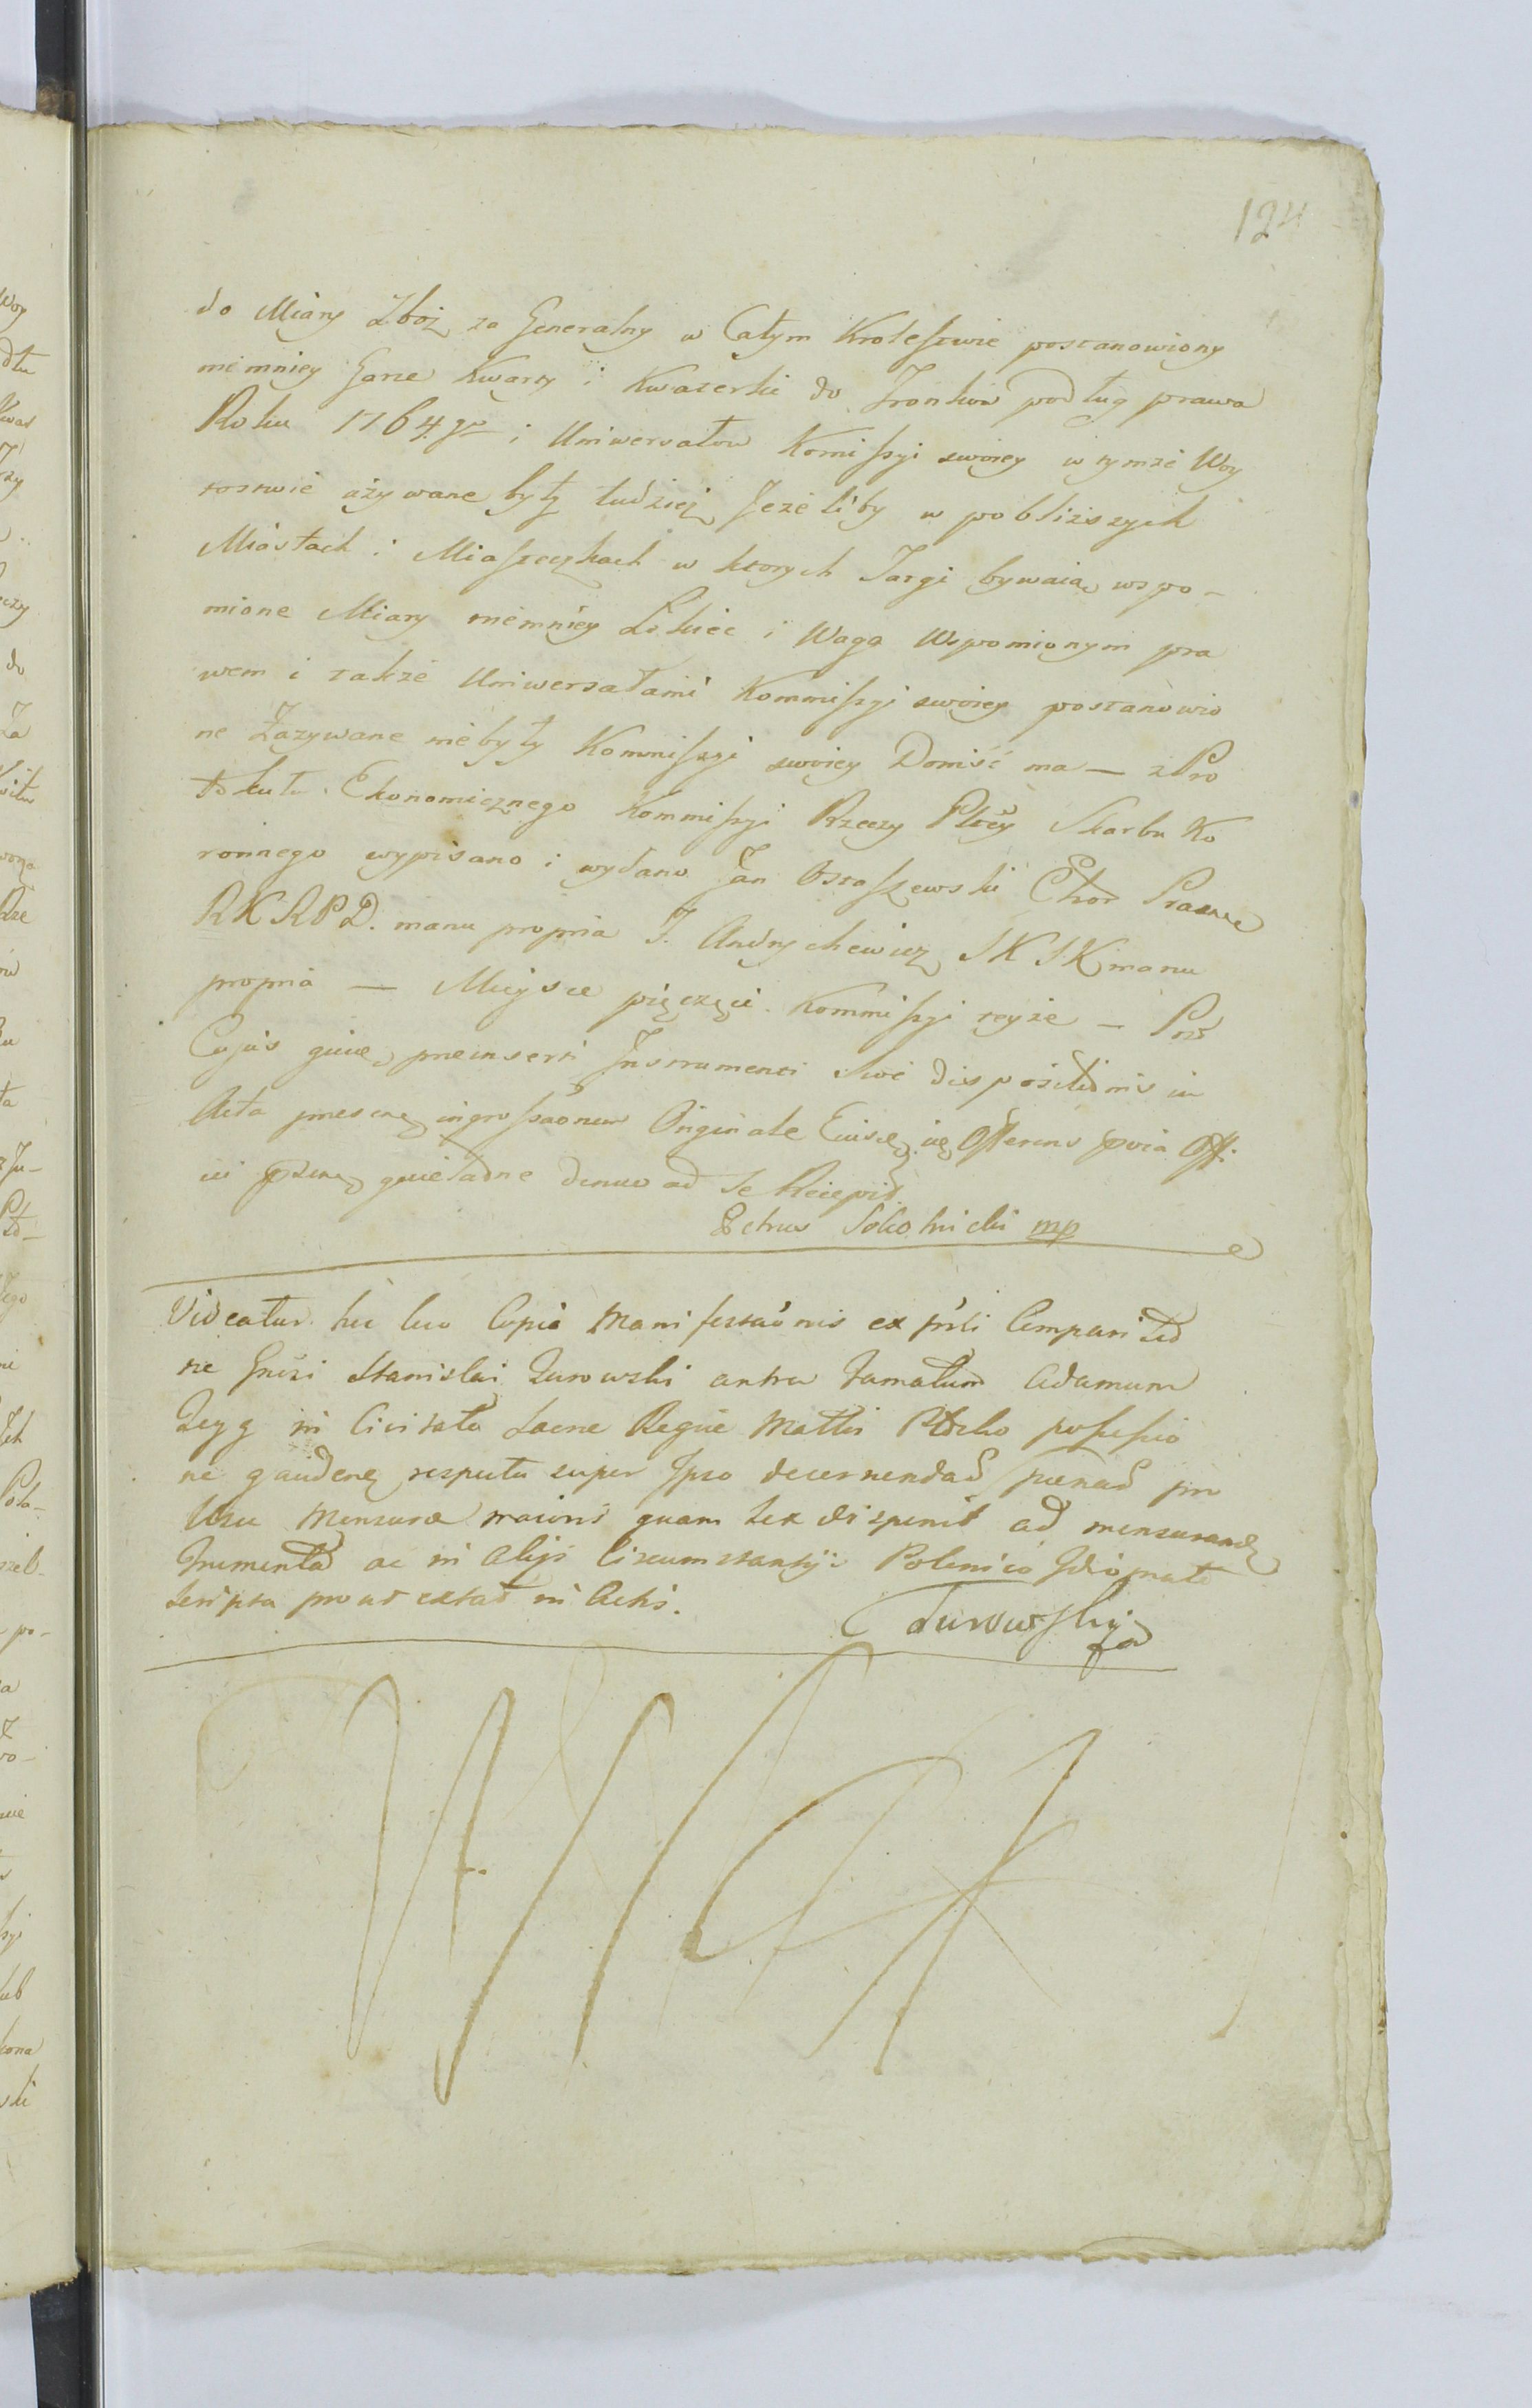 124
do Miary Zboz za Generalny w Całym Krolestwie postanowiony
niemniey Garce Kwarty i Kwaterki do Tronkow podług prawa
Roku 1764.go i Uniwersałow Komissyi swoiey w tymze Woy
tostwie używane były tudziez Jezeliby w pobliższych
Miastach i Miasteczkach w ktorych Targi bywaią wspo-
mione Miary niemniey Łokiec i Waga Wspomionym pra
wem i także Uniwersałami Kommissyi swoiey postanowio
ne Zazywane niebyły Kommissyi swoiey Donieść ma — z Pro
tokułu Ekonomicznego Kommissyi Rzeczy Pltey Skarbu Ko
ronnego wypisano i wydano Jan Ostaszewski
RKRPD. manu propria J. Andrychewicz SKSK manu
propria — Mieysce pieczęci Kommissyi teyże — Post
Cujus quie preinserti Instrumenti sive dispositionis in
Acta ingrossaonem Originale Offerens
denuo ad se Recepit.
Petrus Sokolnicki mp
Videatur hic loco Copia Manifestaonis ex Comparitio
ne Stanislai Zurowski contra Famatum Adamum
Zeyg in Civitate Sacre Regie Mattis possessio
ne gauden respectu super Ipso decernendas poenas pro
Usu Mensura maioris quam Lex disponit ad mensurand
frumenta ac in Alijs Circumstantijs Polonico Idiomate
scripta prout extat in Actis.
Zurowski